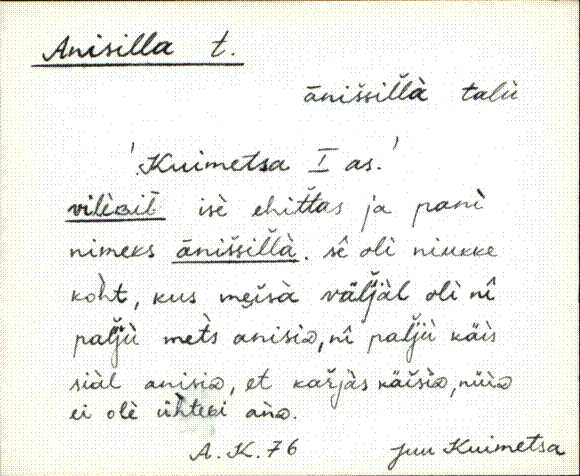 Anisilla t.
ānišsil̆l̆à talù
'Kuimetsa I as.'
vilèᴃil̀ isè ehit̆t̆as ja panì
nimeks ānišsil̆l̆à. sê olì niukke
koh̀t, kus mei̯sà väl̆j̆àl olì nî
pal̆j̆ù met̀s anisiᴅ, nî pal̆j̆ù käìs
siàl anisiᴅ, et kar̆j̆às käisìᴅ, nüìᴅ
ei olè üh̀teɢi äǹᴅ.
A.K. 76 Juu Kuimetsa